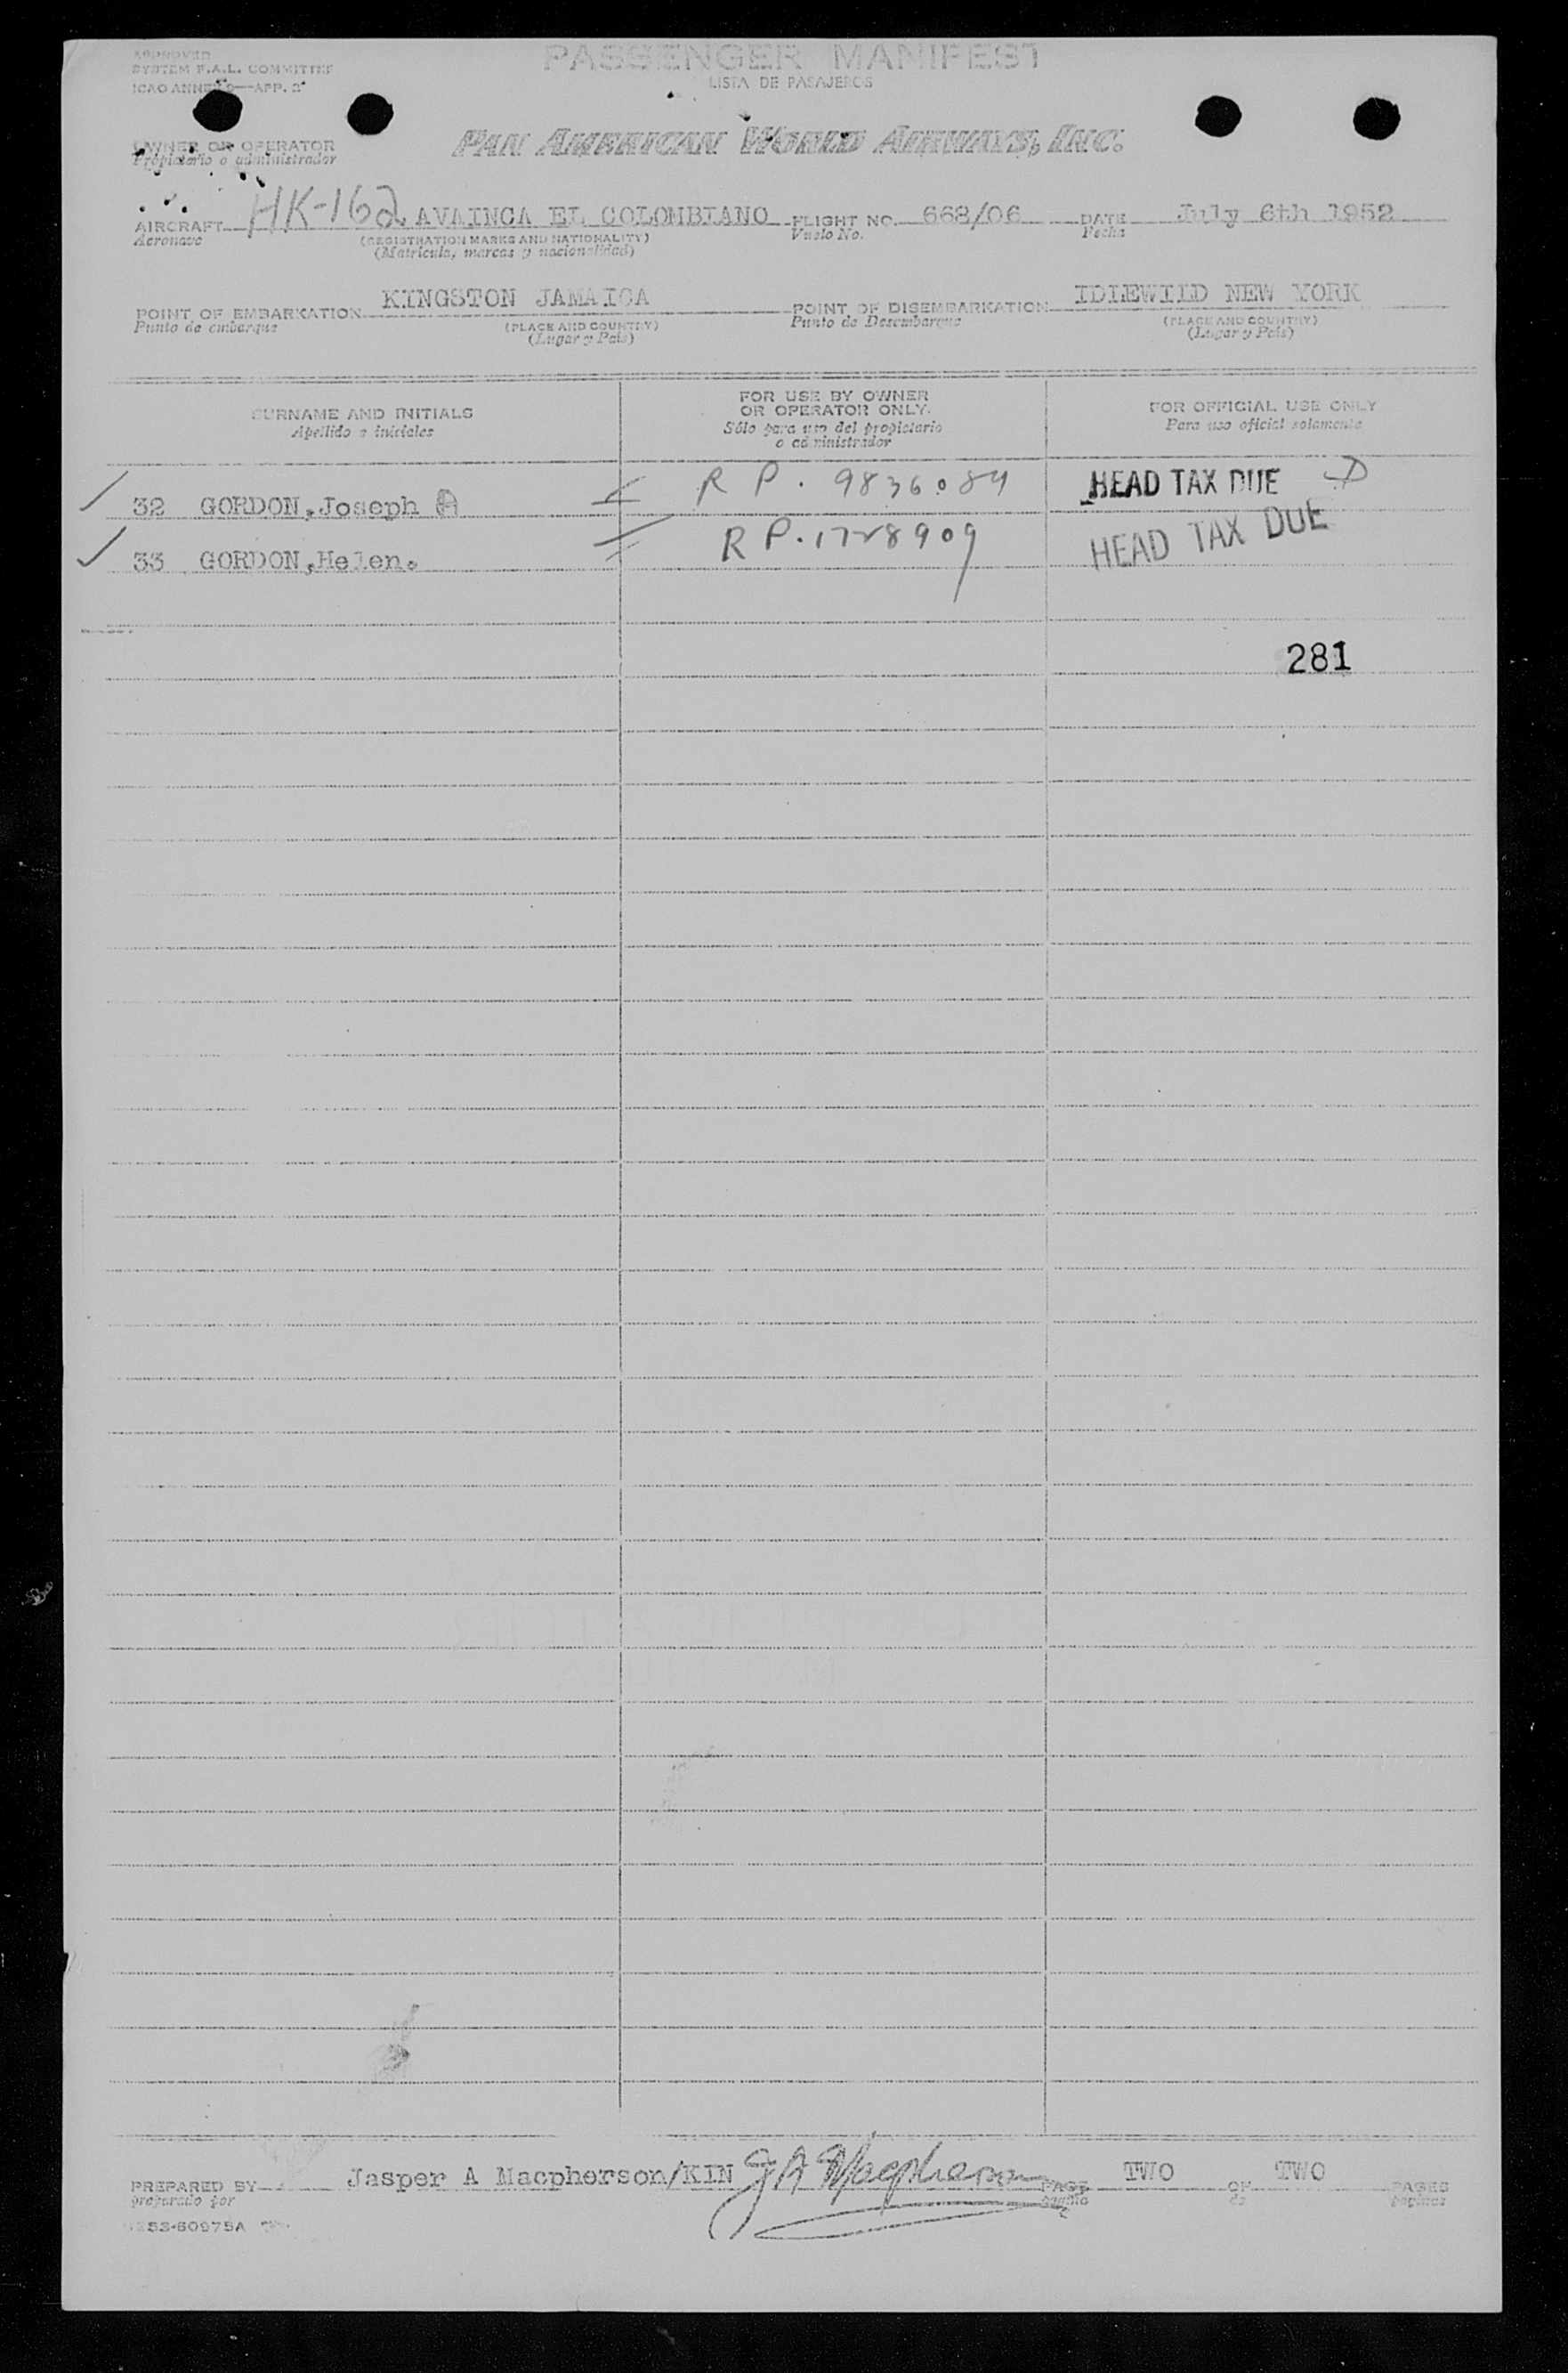 APPROVED
SYSTEM F.A.L. COMMITTEE
ICAO ANNEX 9—APP. 2
PASSENGER MANIFEST
LISTA DE PASAJEROS
OWNER OR OPERATOR
Propietario o administrador
PAN AMERICAN WORLD AIRWAYS, INC.
AIRCRAFT HK-162 AVAINCA EL COLOMBIANO FLIGHT NO. 668/06 DATE July 6th 1952
Aeronave (REGISTRATION MARKS AND NATIONALITY) Vuelo No. Fecha
(Matrícula, marcas y nacionalidad)
POINT OF EMBARKATION KINGSTON JAMAICA POINT OF DISEMBARKATION IDLEWILD NEW YORK
Punto de embarque (PLACE AND COUNTRY) Punto de Desembarque (PLACE AND COUNTRY)
(Lugar y País) (Lugar y País)
SURNAME AND INITIALS
Apellido e iniciales
FOR USE BY OWNER
OR OPERATOR ONLY.
Sólo para uso del propietario
o administrador
FOR OFFICIAL USE ONLY
Para uso oficial solamente
32 GORDON,Joseph A R P. 9836084 HEAD TAX DUE
33 GORDON,Helen. R P. 1728909 HEAD TAX DUE
281
PREPARED BY Jasper A Macpherson/KIN J A Macpherson PAGE TWO OF TWO PAGES
preparado por página de páginas
253-60975A